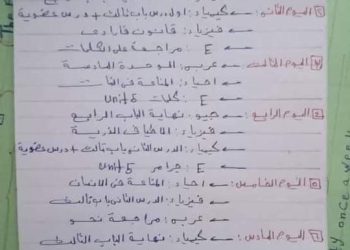 ② اليوم الثانى: ← كيمياء: اول درس باب ثالث + درس عضوية
← فيزياء: قانون فاراداى
← E: مراجعة على الكلمات
③ اليوم الثالث: ← عربى: الوحدة السادسة
← احياء: المناعة فى النبات
← E: كلمات unit 5
④ اليوم الرابع: ← جيو: نهاية الباب الرابع
← فيزياء:
← كيمياء: الدرس الثانى باب ثالث + درس عضوية
← E: جرامر unit 5
⑤ اليوم الخامس: ← احياء: المناعة فى الانسان
← فيزياء: الدرس الثانى باب ثالث
← عربى: مراجعة نحو
⑥ اليوم السادس: ← كيمياء: نهاية الباب الثالث
The
y once a week